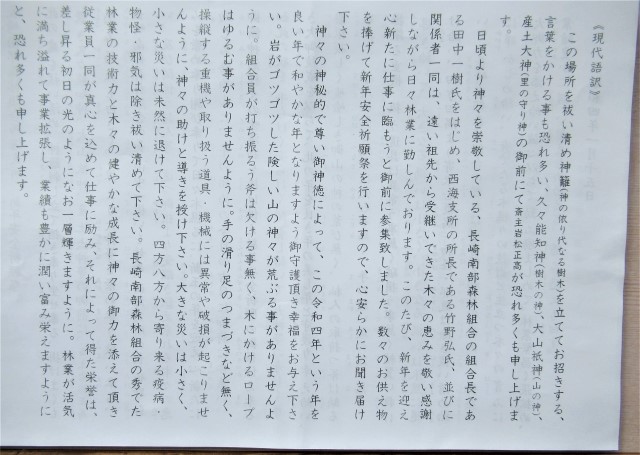 《現代語訳》
この場所を祓い清め神籬(神の依り代なる樹木)を立ててお招きする、
言葉をかける事も恐れ多い、久々能知神(樹木の神)、大山祇神(山の神)、
産土大神(里の守り神)の御前にて斎主岩松正高が恐れ多くも申し上げま
す。
日頃より神々を崇敬している、長崎南部森林組合の組合長であ
る田中一樹氏をはじめ、西海支所の所長である竹野弘氏、並びに
関係者一同は、遠い祖先から受継いできた木々の恵みを敬い感謝
しながら日々林業に勤しんでおります。このたび、新年を迎え
心新たに仕事に臨もうと御前に参集致しました。数々のお供え物
を捧げて新年安全祈願祭を行いますので、心安らかにお聞き届け
下さい。
神々の神秘的で尊い御神徳によって、この令和四年という年を
良い年で和やかな年となりますよう御守護頂き幸福をお与え下さ
い。岩がゴツゴツした険しい山の神々が荒ぶる事がありませんよ
うに。組合員が打ち振るう斧は欠ける事無く、木にかけるロープ
はゆるむ事がありませんように。手の滑り足のつまづきなど無く、
操縦する重機や取り扱う道具・機械には異常や破損が起こりませ
んように、神々の助けと導きを授け下さい。大きな災いは小さく、
小さな災いは未然に退けて下さい。四方八方から寄り来る疫病・
物怪・邪気は除き祓い清めて下さい。長崎南部森林組合の秀でた
林業の技術力と木々の健やかな成長に神々の御力を添えて頂き
従業員一同が真心を込めて仕事に励み、それによって得た栄誉は、
差し昇る初日の光のようになお一層輝きますように。林業が活気
に満ち溢れて事業拡張し、業績も豊かに潤い富み栄えますように
と、恐れ多くも申し上げます。